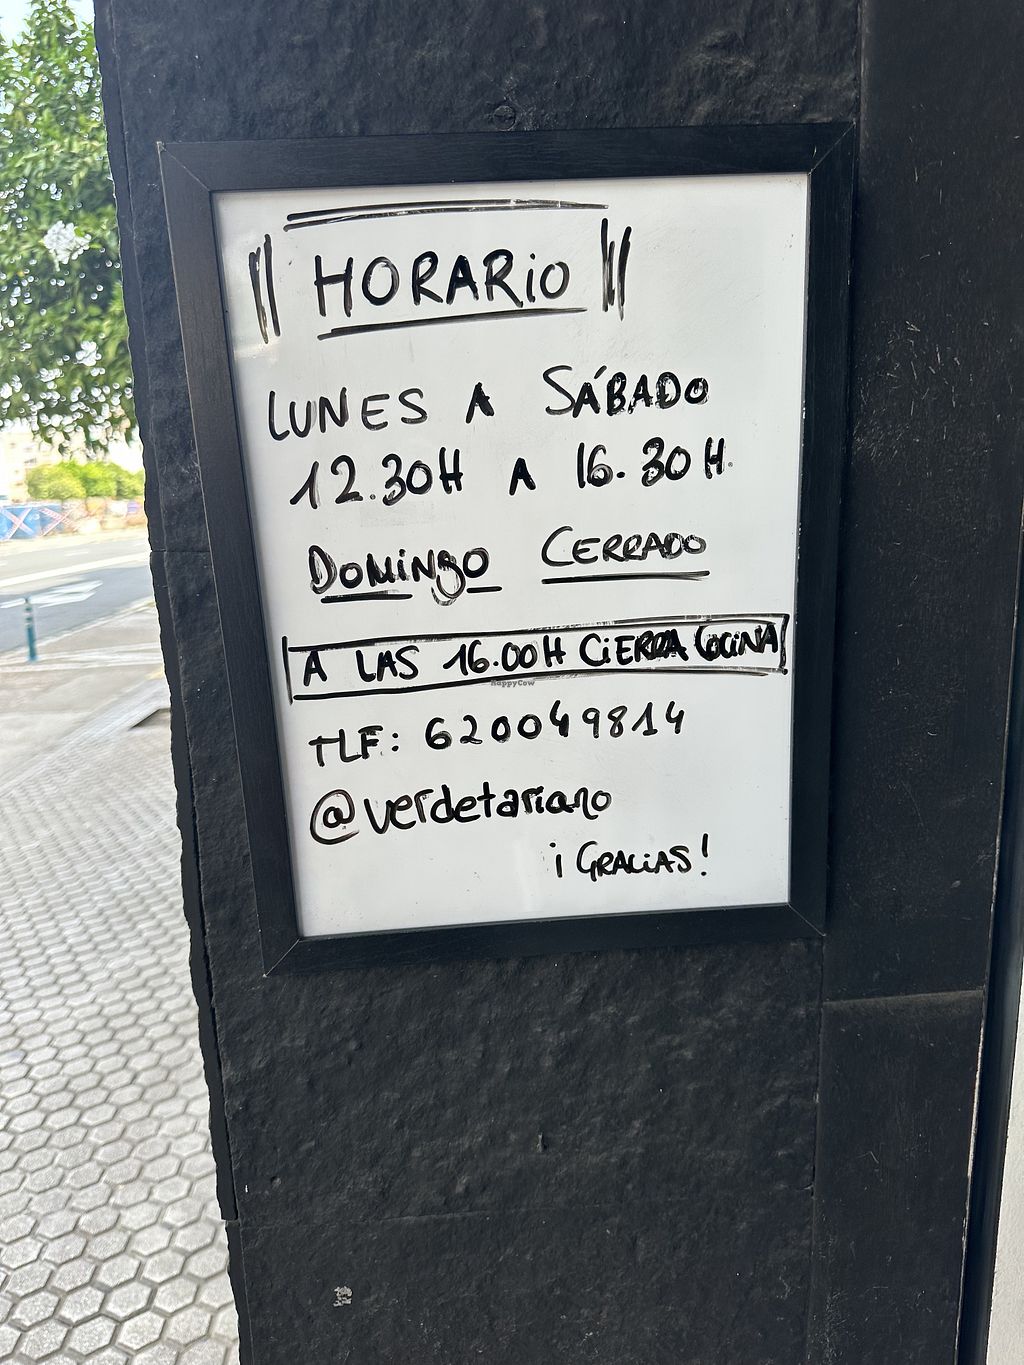 HORARIO
LUNES A SÁBADO
12.30H A 16.30H.
DOMINGO CERRADO
A LAS 16.00H CIERRA COCINA
happyCow
TLF: 620049814
@verdetariano
¡GRACIAS!